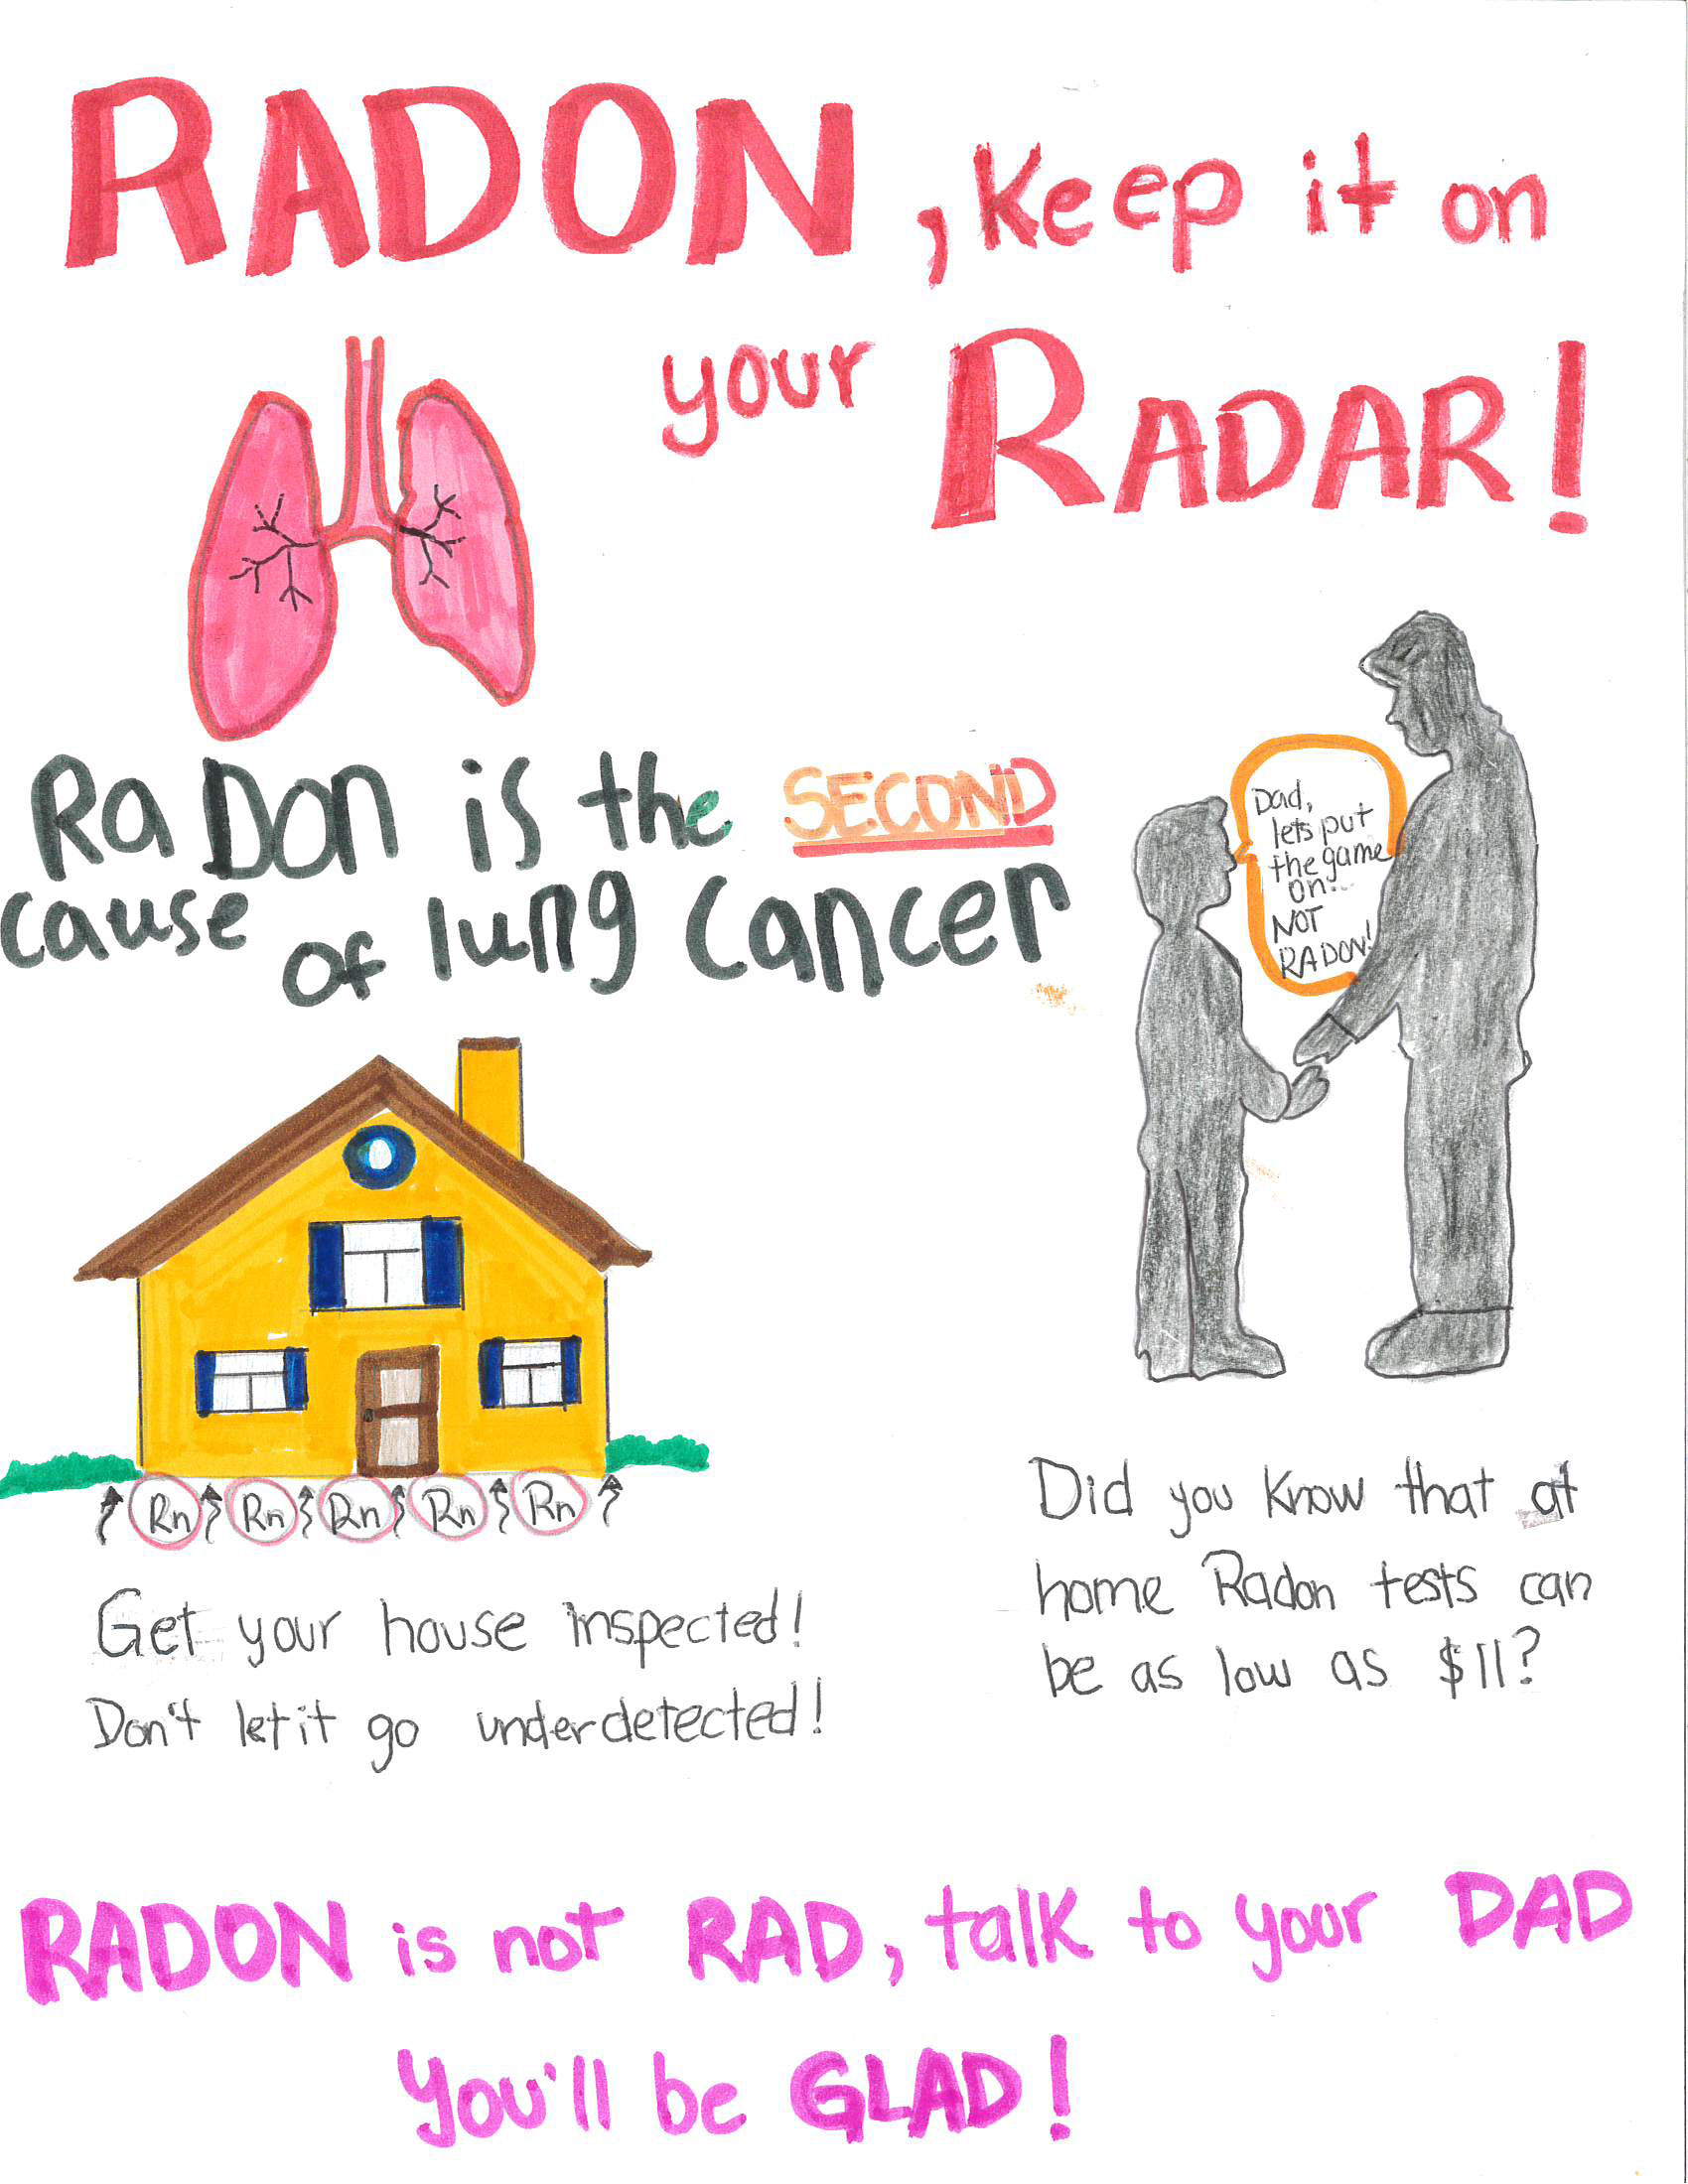 RADON, Keep it on
your RADAR!
RaDon is the SECOND
cause of lung cancer
Dad,
lets put
the game
on...
NOT
RADON!
Rn Rn Rn Rn Rn
Get your house inspected!
Don't let it go underdetected!
Did you know that at
home Radon tests can
be as low as $11?
RADON is not RAD, talk to your DAD
You'll be GLAD!